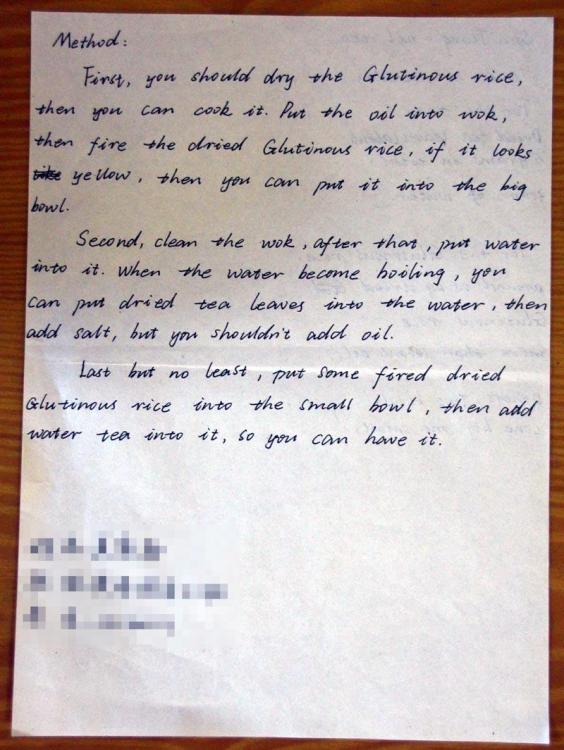 Method:
First, you should dry the Glutinous rice,
then you can cook it. Put the oil into wok,
then fire the dried Glutinous rice, if it looks
yellow, then you can put it into the big
bowl.
Second, clean the wok, after that, put water
into it. When the water become boiling, you
can put dried tea leaves into the water, then
add salt, but you shouldn't add oil.
Last but no least, put some fired dried
Glutinous rice into the small bowl, then add
water tea into it, so you can have it.